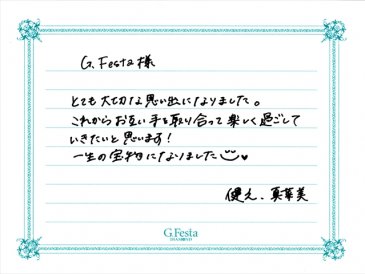 G.Festa様
とても大切な思い出になりました。
これからお互い手を取り合って楽しく過ごして
いきたいと思います!
一生の宝物になりました
健え、真華美
G.Festa
DIAMOND